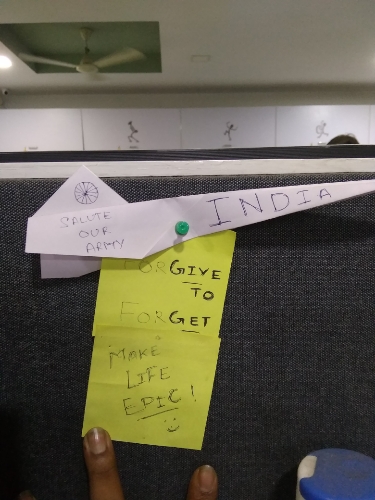 SALUTE
OUR
ARMY
INDIA
FORGIVE
TO
FORGET
MAKE
LIFE
EPIC!